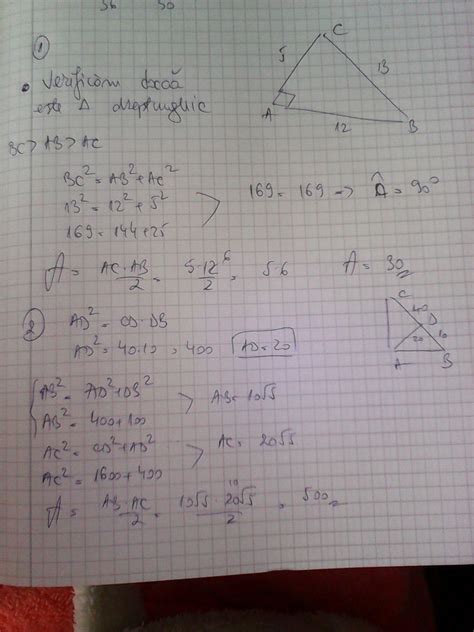 36 50
①
• Verificăm dacă
este Δ dreptunghic
C
5
13
A
12
B
BC > AB > AC
BC² = AB² + AC²
13² = 12² + 5²
169 = 144 + 25
169 = 169 => Â = 90°
A = AC·AB/2 = 5·12/2 6 = 5·6
A = 30
②
AD² = CD·DB
AD² = 40·10 = 400 AD = 20
C
40
D
20
10
A
B
AB² = AD² + DB²
AB² = 400 + 100
AB = 10√5
AC² = CD² + AD²
AC² = 1600 + 400
AC = 20√5
A = AB·AC/2 = 10√5·20√5/2 10 = 500